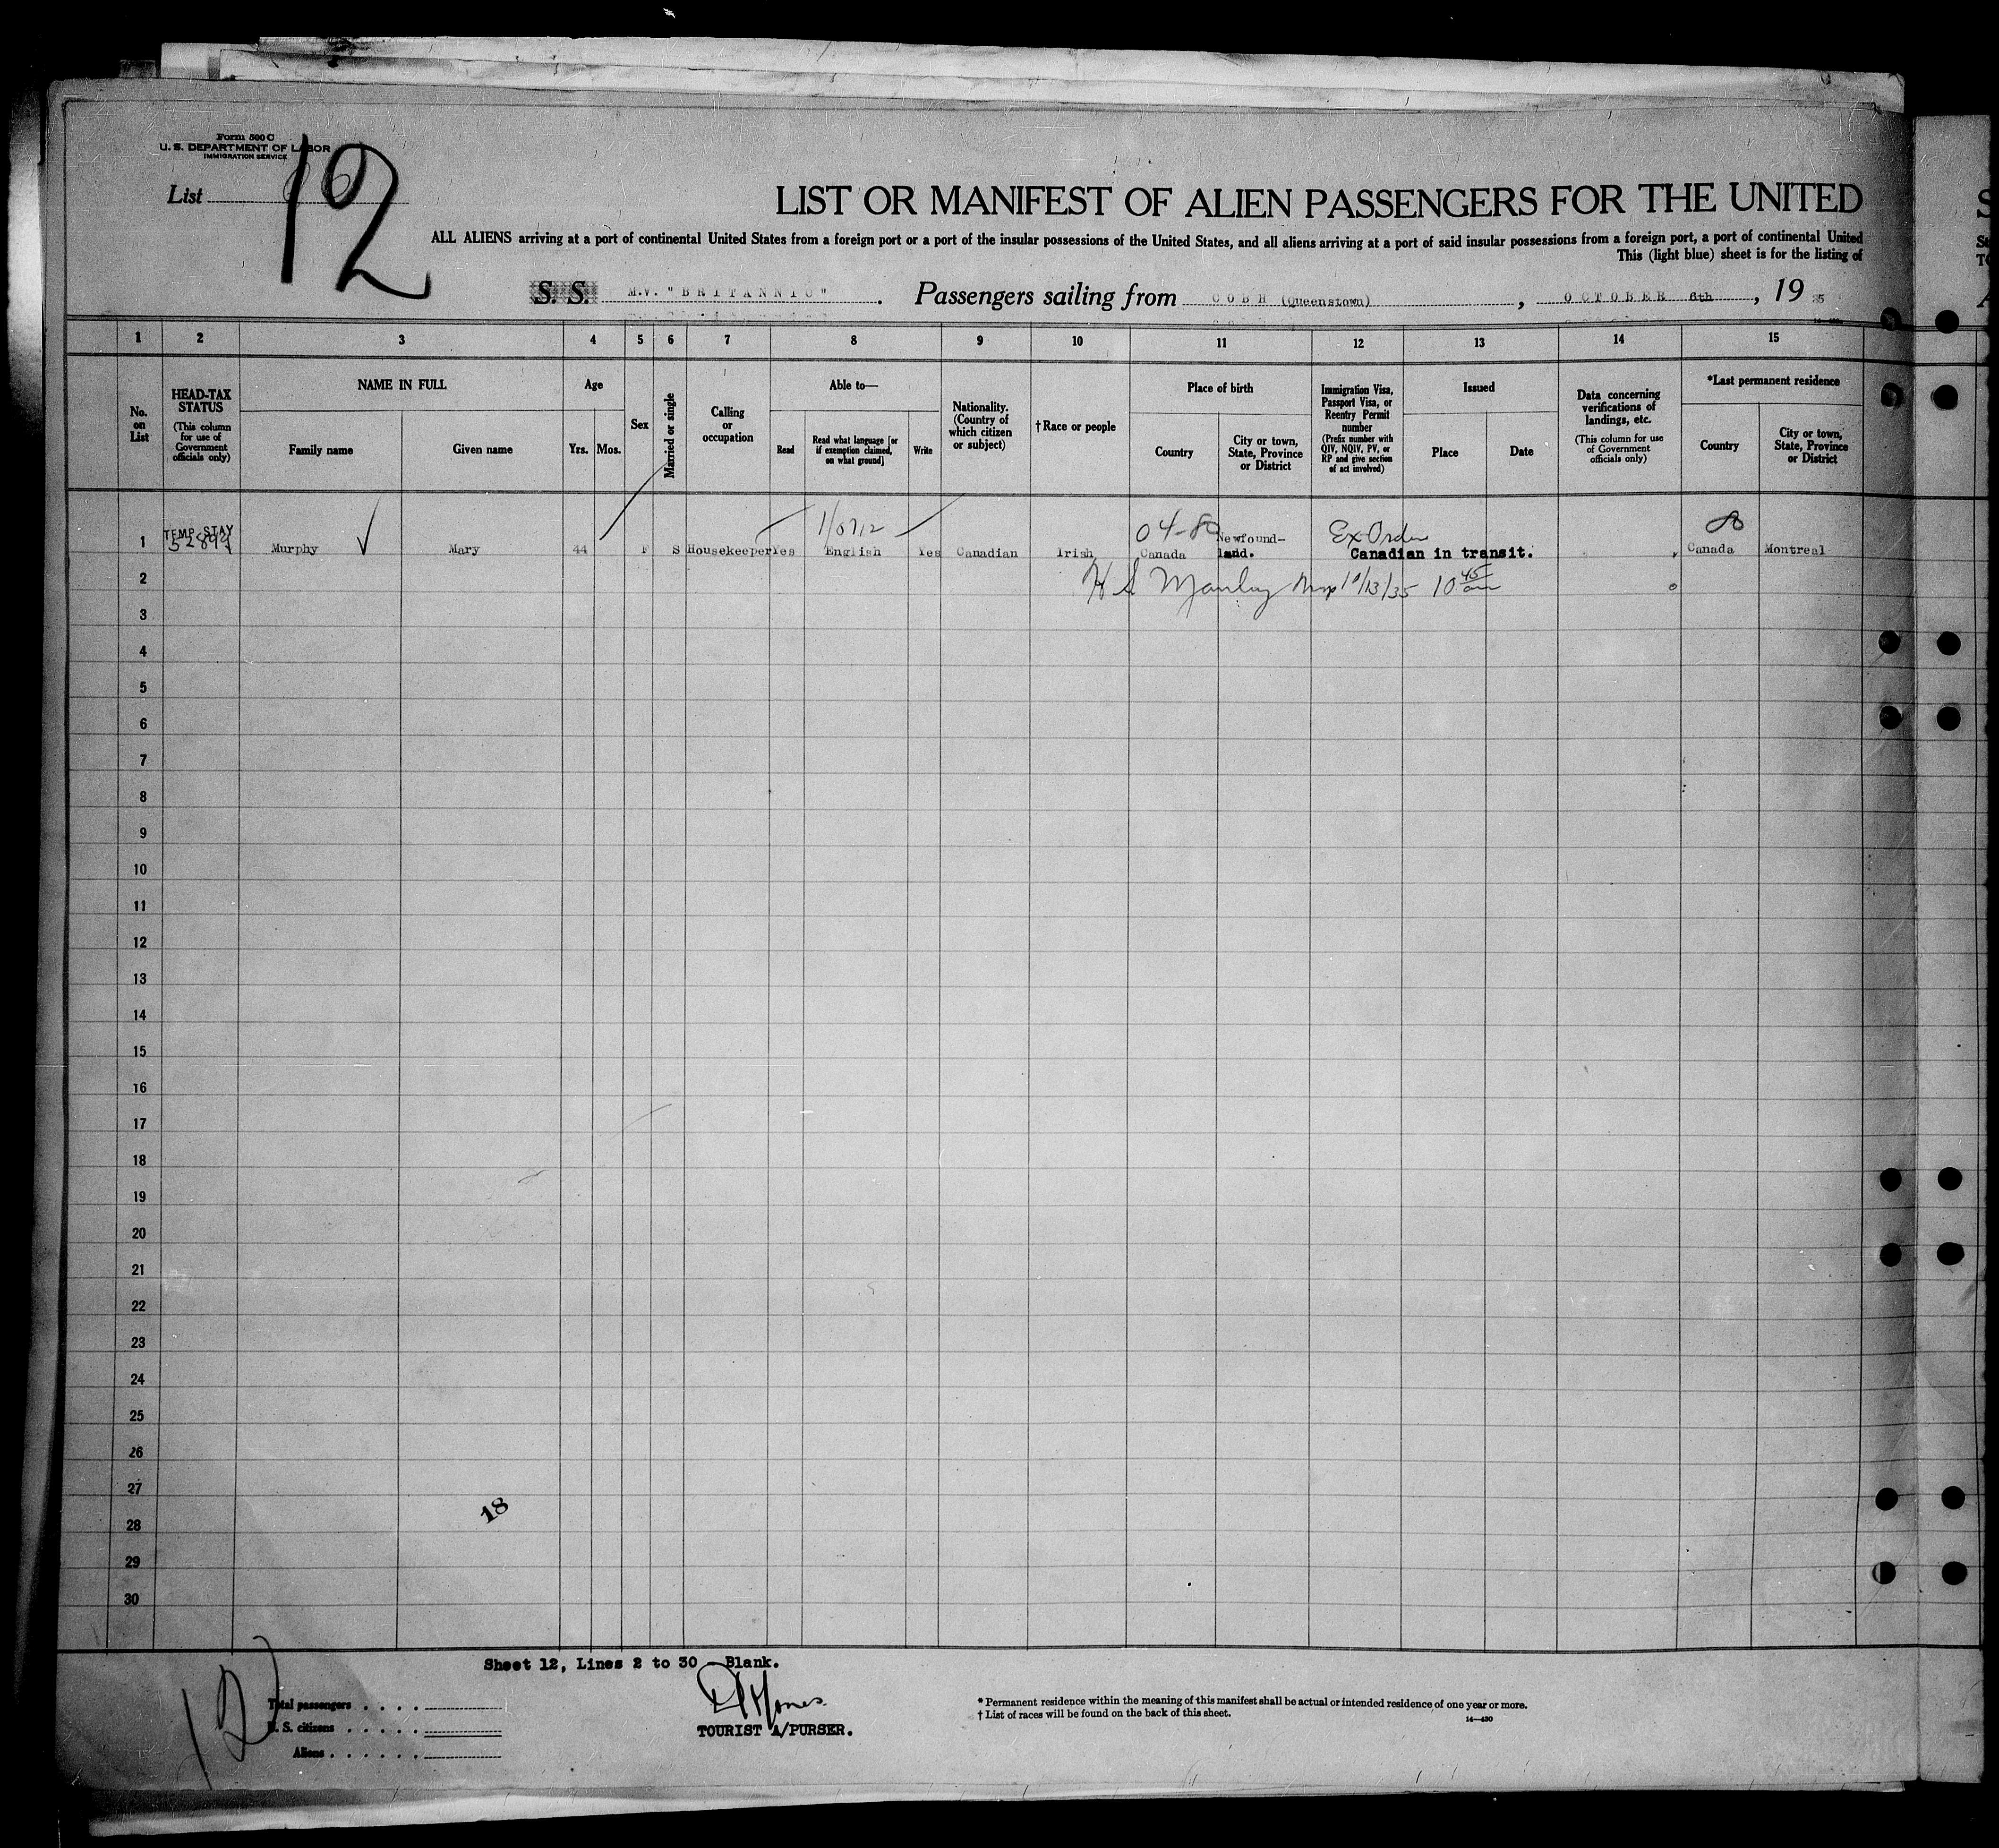 Form 500 C
U. S. DEPARTMENT OF LABOR
IMMIGRATION SERVICE
List
12
LIST OR MANIFEST OF ALIEN PASSENGERS FOR THE UNITED
ALL ALIENS arriving at a port of continental United States from a foreign port or a port of the insular possessions of the United States, and all aliens arriving at a port of said insular possessions from a foreign port, a port of continental United
This (light blue) sheet is for the listing of
S. S. M.V. "BRITANNIC". Passengers sailing from COBH (Queenstown), OCTOBER 6th, 1935
1 2 3 4 5 6 7 8 9 10 11 12 13 14 15
No. on List
HEAD-TAX STATUS
(This column for use of Government officials only)
NAME IN FULL
Family name
Given name
Age
Yrs.
Mos.
Sex
Married or single
Calling or occupation
Able to—
Read
Read what language [or if exemption claimed, on what ground]
Write
Nationality. (Country of which citizen or subject)
†Race or people
Place of birth
Country
City or town, State, Province or District
Immigration Visa, Passport Visa, or Reentry Permit number
(Prefix number with QIV, NQIV, PV, or RP and give section of act involved)
Issued
Place
Date
Data concerning verifications of landings, etc.
(This column for use of Government officials only)
*Last permanent residence
Country
City or town, State, Province or District
TEMP STAY
04-8
Ex Order
8
1 Murphy Mary 44 F S Housekeeper Yes English Yes Canadian Irish Canada Newfound-land. Canadian in transit. Canada Montreal
2 10/13/35 10 45 am
3
4
5
6
7
8
9
10
11
12
13
14
15
16
17
18
19
20
21
22
23
24
25
26
27
28
29
30
18
Sheet 12, Lines 2 to 30 Blank.
12
Total passengers
U. S. citizens
Aliens
Jones
TOURIST A/PURSER.
* Permanent residence within the meaning of this manifest shall be actual or intended residence of one year or more.
† List of races will be found on the back of this sheet.
14—430